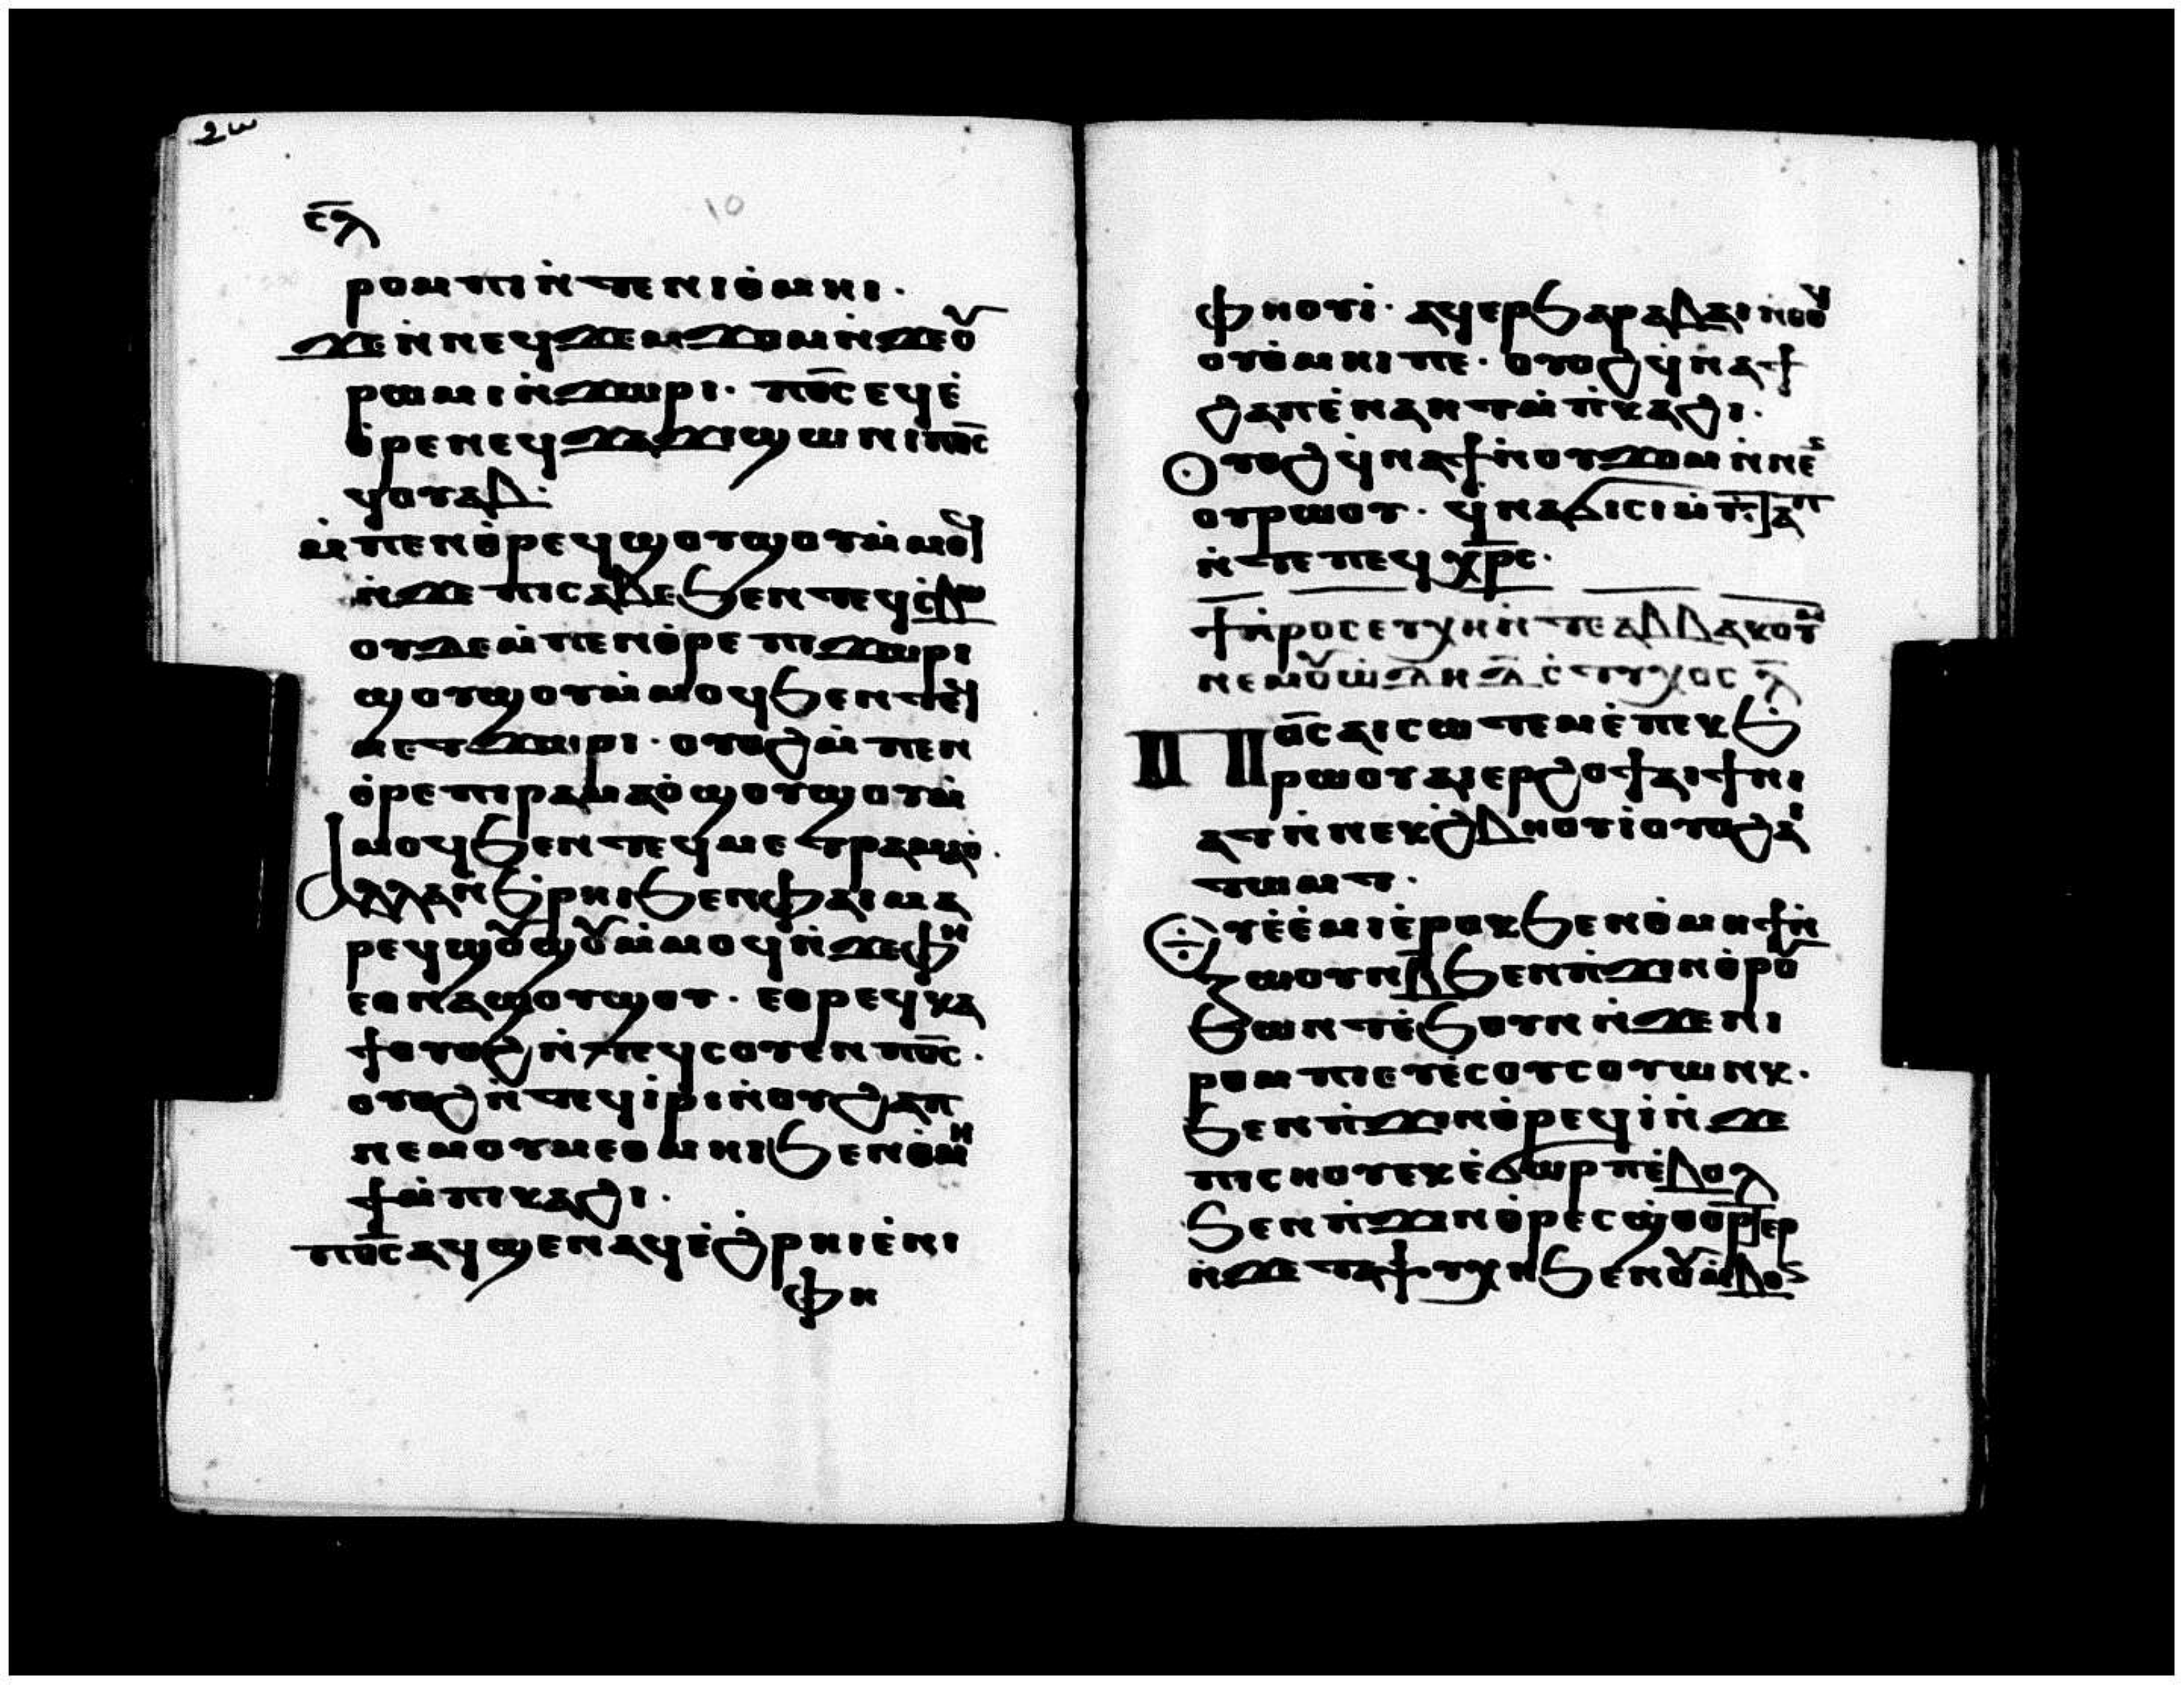 ⲥ̅ⲗ
10
ⲣⲟⲙⲡⲓⲛ̇ⲧⲉⲛⲓⲑ̇ⲙⲏⲓ.
ϫⲉⲛ̇ⲛⲉϥϫⲉⲙϫⲟⲙⲛ̇ϫⲉⲟⲩ
ⲣⲱⲙⲓⲛ̇ϫⲱⲣⲓ. ⲡⲟ̅ⲥ̅ⲉϥⲉ̇
ⲑ̇ⲣⲉⲛⲉϥϫⲁϫⲓϣⲱⲛⲓⲡⲟ̅ⲥ̅
ϥⲟⲩⲁⲃ.
ⲙ̇ⲡⲉⲛⲑ̇ⲣⲉϥϣⲟⲩϣⲟⲩⲙ̇ⲙⲟϥ
ⲛ̇ϫⲉⲡⲓⲥⲁⲃⲉϧⲉⲛⲧⲉϥⲥⲃⲱ
ⲟⲩⲇⲉⲙ̇ⲡⲉⲛⲑ̇ⲣⲉⲡⲓϫⲱⲣⲓ
ϣⲟⲩϣⲟⲩⲙ̇ⲙⲟϥϧⲉⲛⲧⲉϥ
ⲙⲉⲧϫⲱⲣⲓ. ⲟⲩⲟϩⲙ̇ⲡⲉⲛ
ⲑ̇ⲣⲉⲡⲓⲣⲁⲙⲁⲟ̇ϣⲟⲩϣⲟⲩⲙ̇
ⲙⲟϥϧⲉⲛⲧⲉϥⲙⲉⲧⲣⲁⲙⲁⲟ̇.
ⲁⲗⲗⲁⲛ̇ϧ̇ⲣⲏⲓϧⲉⲛⲫⲁⲓⲙⲁ
ⲣⲉϥϣⲟⲩϣⲟⲩⲙ̇ⲙⲟϥⲛ̇ϫⲉⲫⲏ
ⲉⲑⲛⲁϣⲟⲩϣⲟⲩ. ⲉⲑⲣⲉϥⲕⲁ
ϯⲟⲩⲟϩⲛ̇ⲧⲉϥⲥⲟⲩⲉⲛⲡⲟ̅ⲥ̅.
ⲟⲩⲟϩⲛ̇ⲧⲉϥⲓ̇ⲣⲓⲛ̇ⲟⲩϩⲁⲡ
ⲛⲉⲙⲟⲩⲙⲉⲑⲙⲏⲓϧⲉⲛⲑ̇ⲙⲏ
ϯⲙ̇ⲡⲓⲕⲁϩⲓ.
ⲡⲟ̅ⲥ̅ⲁϥϣⲉⲛⲁϥⲉ̇ϩ̇ⲣⲏⲓⲉ̇ⲛⲓ
ⲫⲏ
ⲫⲏⲟⲩⲓ̇. ⲁϥⲉⲣϧⲁⲣⲁⲃⲁⲓⲛ̇ⲑⲟϥ
ⲟⲩⲑ̇ⲙⲏⲓⲡⲉ. ⲟⲩⲟϩϥ̇ⲛⲁϯ
ϩⲁⲡⲉ̇ⲛⲁⲛⲧⲙ̇ⲡ̇ⲕⲁϩⲓ.
ⲟⲩⲟϩϥ̇ⲛⲁϯⲛ̇ⲟⲩϫⲟⲙⲛ̇ⲛⲉ
ⲟⲩⲣⲱⲟⲩ. ϥ̇ⲛⲁϭⲓⲥⲓⲙ̇ⲡ̇ⲧⲁⲡ
ⲛ̇ⲧⲉⲡⲉϥⲭ̅ⲣ̅ⲥ̅.
ϯⲡ̇ⲣⲟⲥⲉⲩⲭⲏⲛ̇ⲧⲉⲁⲃⲃⲁⲕⲟⲩⲙ
ⲛⲉⲙⲟⲩⲱ̇ⲇⲏ ⲇ̅ ⲥ̇ⲧⲩⲭⲟⲥ ⲗ̅
ⲡⲟ̅ⲥ̅ⲁⲓⲥⲱⲧⲉⲙⲉ̇ⲡⲉⲕϧ̇
ⲣⲱⲟⲩⲁⲓⲉⲣϩⲟϯⲁⲓϯⲛⲓ
ⲁⲧⲛ̇ⲛⲉⲕϩ̇ⲃⲏⲟⲩⲓ̇ⲟⲩⲟϩⲁⲓ
ⲧⲱⲙⲧ.
ⲉⲩⲉ̇ⲉ̇ⲙⲓⲉ̇ⲣⲟⲕϧⲉⲛⲑ̇ⲙⲏϯⲛ̇
ⲍⲱⲟⲩⲛⲃ̅ϧⲉⲛⲡ̇ϫⲓⲛⲑ̇ⲣⲟⲩ
ϧⲱⲛⲧⲉ̇ϧⲟⲩⲛⲛ̇ϫⲉⲛⲓ
ⲣⲟⲙⲡⲓⲉⲩⲉ̇ⲥⲟⲩⲥⲟⲩⲱⲛⲕ.
ϧⲉⲛⲡ̇ϫⲓⲛⲑ̇ⲣⲉϥⲓ̇ⲛ̇ϫⲉ
ⲡⲓⲥⲏⲟⲩⲉⲕⲉ̇ϭⲱⲣⲡⲉ̇ⲃⲟⲗ
ϧⲉⲛⲡ̇ϫⲓⲛⲑ̇ⲣⲉⲥϣⲑⲟⲣⲧⲉⲣ
ⲛ̇ϫⲉⲧⲁⲯⲩⲭⲏϧⲉⲛⲟⲩⲙ̇ⲃⲟⲛ